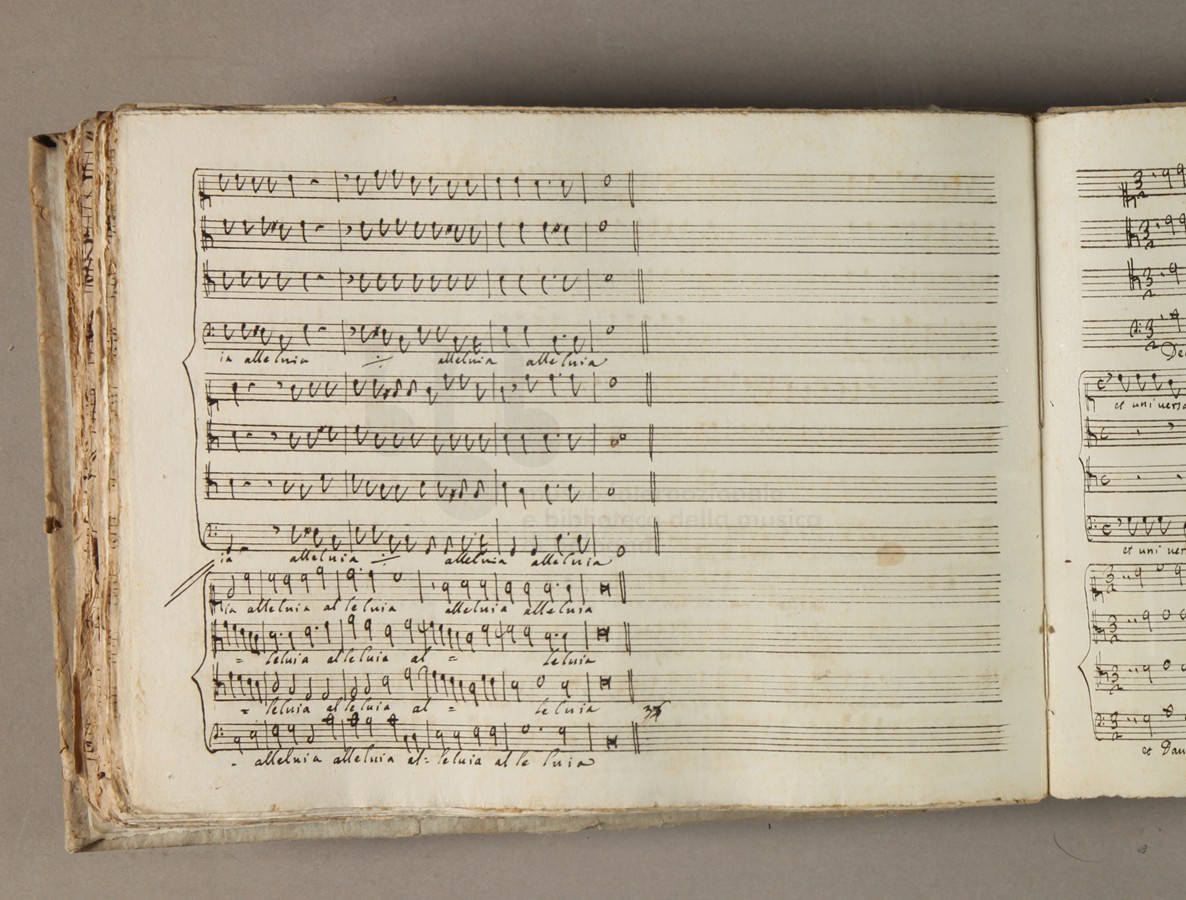 ia alleluia alleluia alleluia
ia alleluia alleluia alleluia
ia alleluia alleluia alleluia alleluia
= leluia alleluia al = leluia
= leluia alleluia al = leluia
- alleluia alleluia al= leluia alleluia
e biblioteca della musica
3
3
3
3
et uni
et uni
3
3
3
3
et